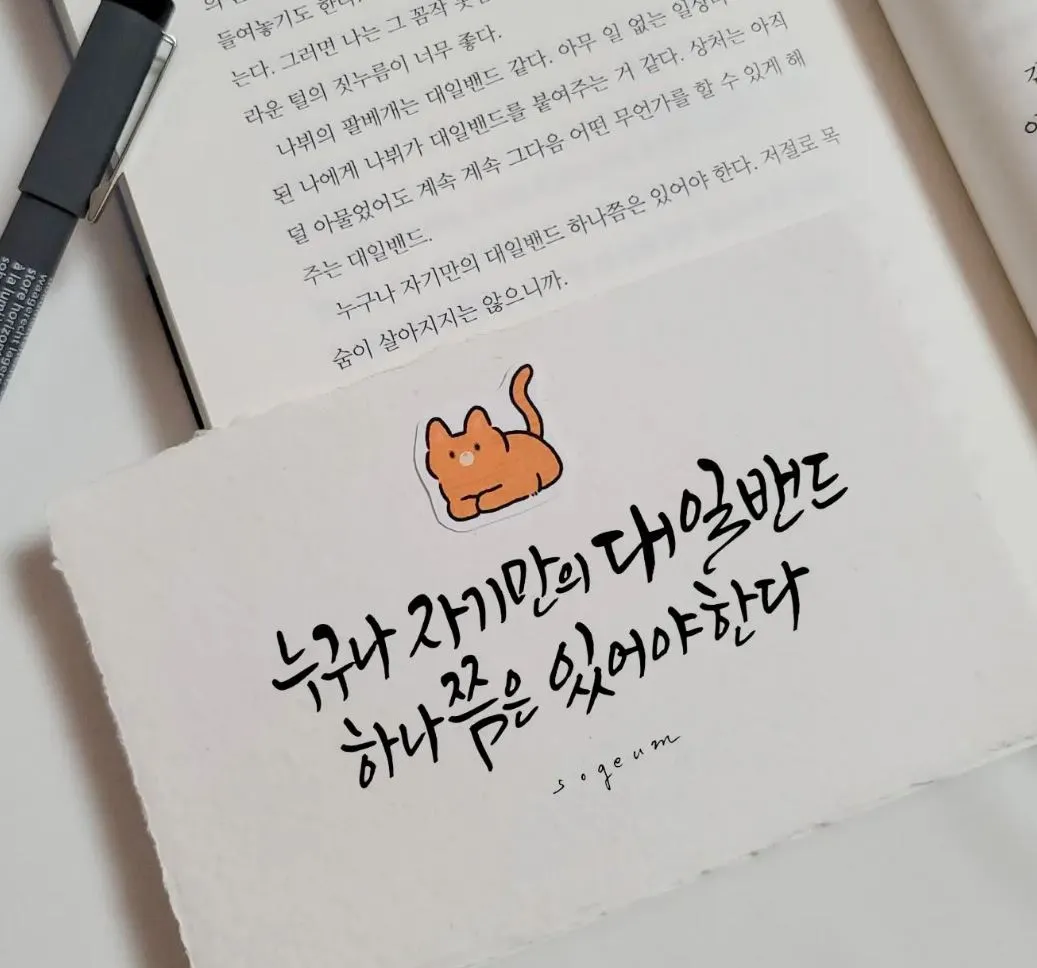 들여놓기도 한다.
는다. 그러면 나는 그 꼼작
라운 털의 짓누름이 너무 좋다.
나뷔의 팔베개는 대일밴드 같다. 아무 일 없는 일상
된 나에게 나뷔가 대일밴드를 붙여주는 거 같다. 상처는 아직
덜 아물었어도 계속 계속 그다음 어떤 무언가를 할 수 있게 해
주는 대일밴드.
누구나 자기만의 대일밴드 하나쯤은 있어야 한다. 저절로 목
숨이 살아지지는 않으니까.
누구나 자기만의 대일밴드
하나쯤은 있어야한다
sogeum
waagerecht lager
store horizon
à la lumi